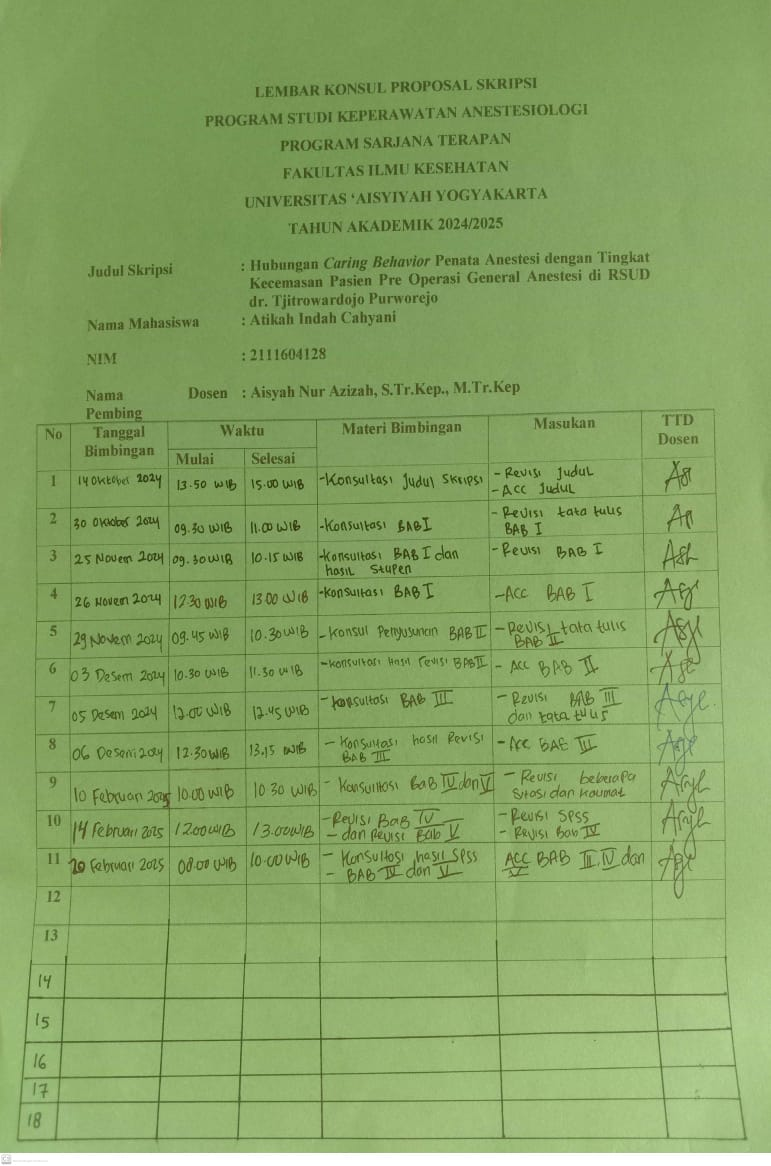 LEMBAR KONSUL PROPOSAL SKRIPSI
PROGRAM STUDI KEPERAWATAN ANESTESIOLOGI
PROGRAM SARJANA TERAPAN
FAKULTAS ILMU KESEHATAN
UNIVERSITAS ‘AISYIYAH YOGYAKARTA
TAHUN AKADEMIK 2024/2025
Judul Skripsi : Hubungan Caring Behavior Penata Anestesi dengan Tingkat
Kecemasan Pasien Pre Operasi General Anestesi di RSUD
dr. Tjitrowardojo Purworejo
Nama Mahasiswa : Atikah Indah Cahyani
NIM : 2111604128
Nama Dosen : Aisyah Nur Azizah, S.Tr.Kep., M.Tr.Kep
Pembing
No Tanggal Bimbingan Waktu Materi Bimbingan Masukan TTD Dosen
Mulai Selesai
1 14 Oktober 2024 13.50 WIB 15.00 WIB -Konsultasi Judul Skripsi - Revisi Judul
- Acc Judul
2 30 Oktober 2024 09.30 WIB 11.00 WIB -Konsultasi BAB I - Revisi tata tulis
BAB I
3 25 Novem 2024 09.30 WIB 10.15 WIB -Konsultasi BAB I dan - Revisi BAB I
hasil Stupen
4 26 Novem 2024 12.30 WIB 13.00 WIB -Konsultasi BAB I -ACC BAB I
5 29 Novem 2024 09.45 WIB 10.30 WIB - Konsul Penyusunan BAB II - Revisi tata tulis
BAB II
6 03 Desem 2024 10.30 WIB 11.30 WIB -Konsultasi Hasil revisi BAB II - Acc BAB II
7 05 Desem 2024 12.00 WIB 12.45 WIB - Konsultasi BAB III - Revisi BAB III
dan tata tulis
8 06 Desem 2024 12.30 WIB 13.15 WIB - Konsultasi hasil Revisi - Acc BAB III
BAB III
9 10 Februari 2025 10.00 WIB 10 30 WIB - Konsultasi Bab IV dan V - Revisi beberapa
sitasi dan
10 14 Februari 2025 12.00 WIB 13.00 WIB - Revisi Bab IV - Revisi SPSS
- dan Revisi Bab V - Revisi Bab IV
11 20 Februari 2025 08.00 WIB 10.00 WIB - Konsultasi hasil SPSS ACC BAB III, IV dan
- BAB IV dan V V
12
13
14
15
16
17
18